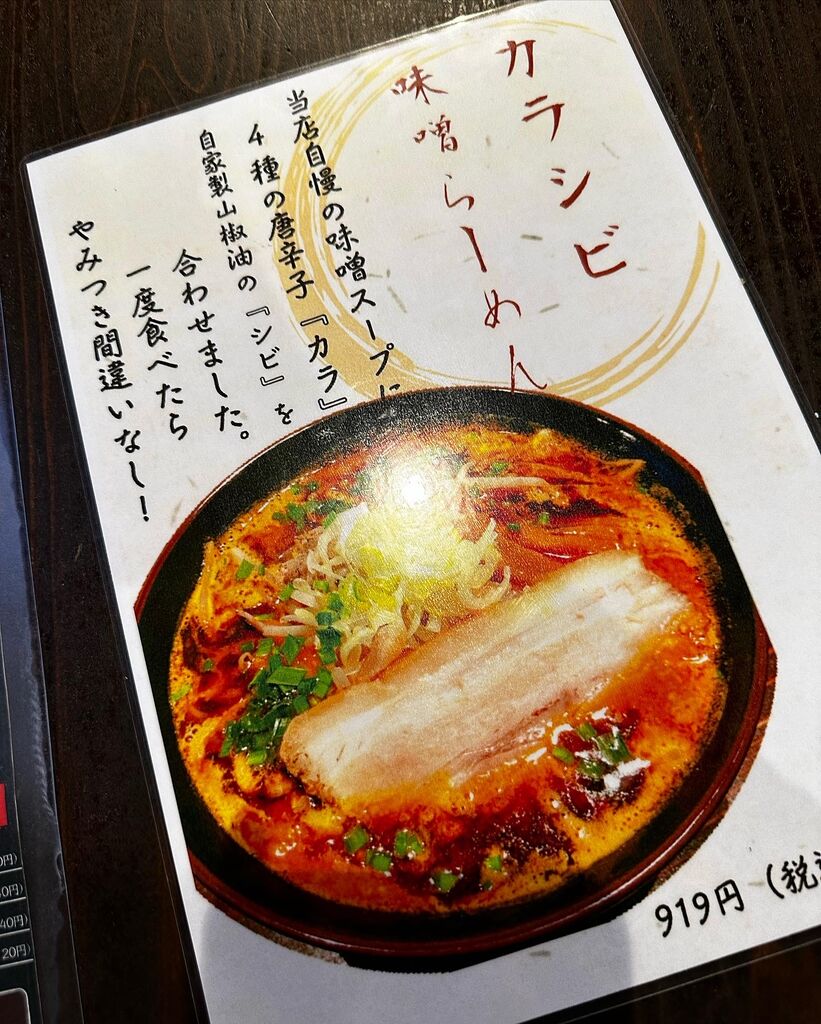 カラシビ
味噌らーめん
当店自慢の味噌スープに
4種の唐辛子『カラ』
自家製山椒油の『シビ』を
合わせました。
一度食べたら
やみつき間違いなし!
919円(税
0円)
40円)
20円)